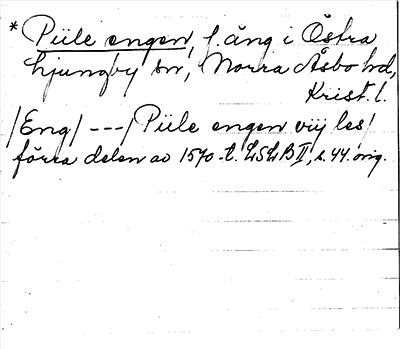 * Piile engen, f. äng i Östra
Ljungby sn, Norra Åsbo hd,
Krist. l.
/Eng/ --- / Piile engen vij les/
förra delen av 1570-t. LSLB II, s. 44. orig.